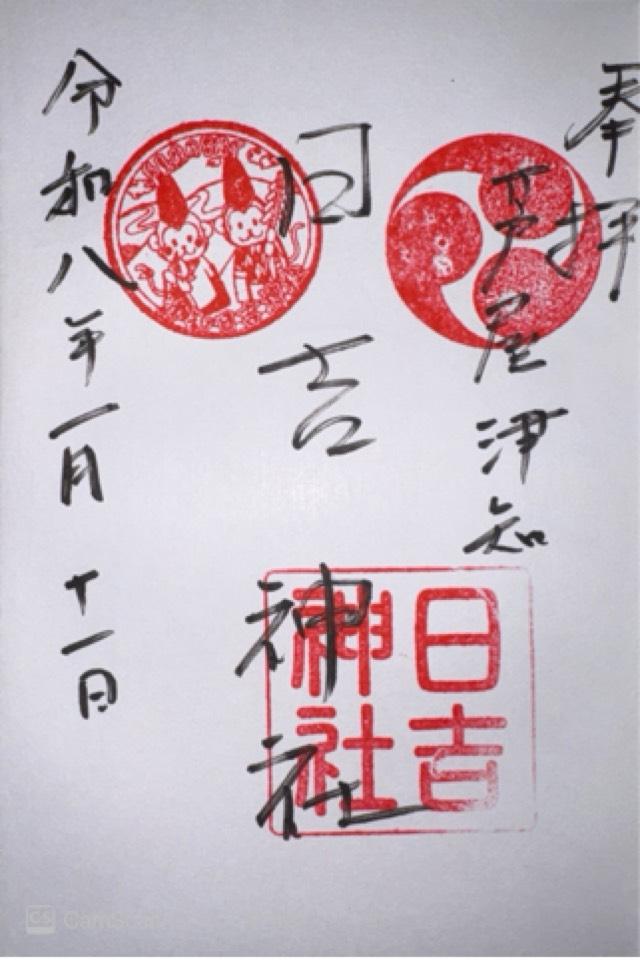 奉拝
芦屋津知
日吉
神社
日吉
神社
令和八年一月十一日
CS CamScanner